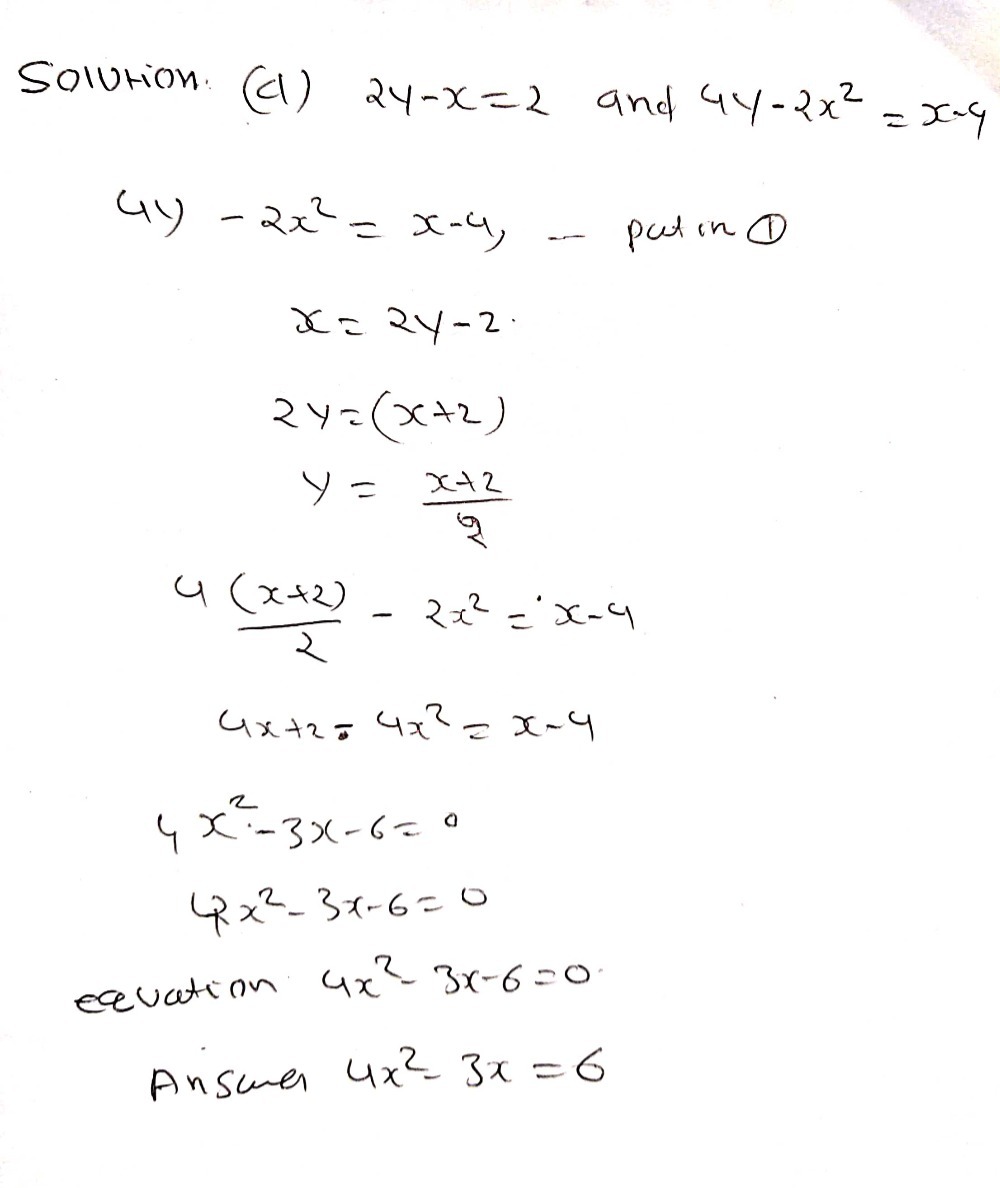 Solution. (d) 2y-x=2 and 4y-2x² = x-4
4y - 2x² = x-4, — put in ①
x = 2y-2.
2y=(x+2)
y = x+2/2
4(x+2)/2 - 2x² = x-4
4x+2 = 4x² = x-4
4x²-3x-6=0
4x²-3x-6=0
equation 4x²-3x-6=0.
Answer 4x²-3x=6